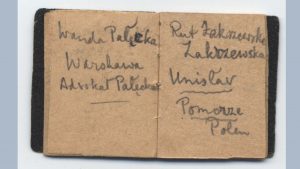 Wanda Pałęcka
Warshawa
Advokat Pałecka
Rut Zakrzewska
Zakrzewska
Unislav
Pomorze
Polen